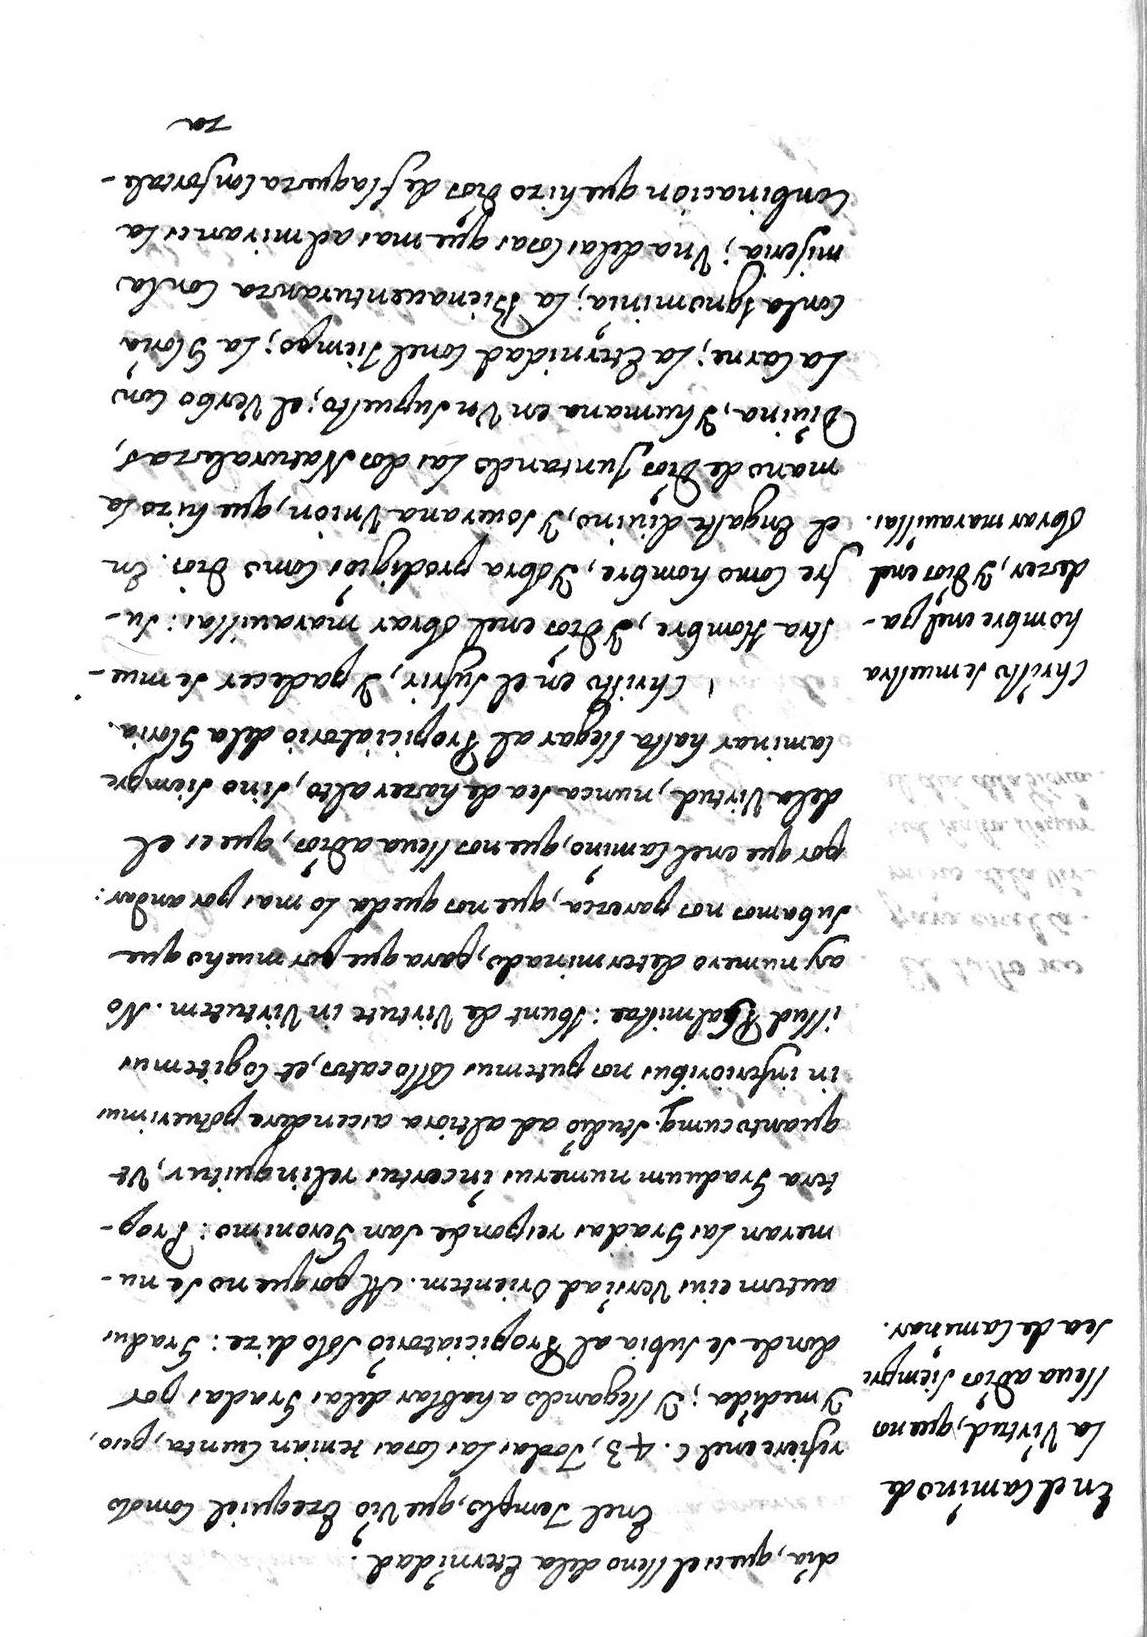 dia, que es el lleno dela Eternidad.
En el Camino de
la Virtud, que nos
lleva a Dios siempre
sea de Caminar.
Enel Templo, que vio Ezequiel Como lo
refiere enel C. 43, Todas las Cosas tenian Cuenta, peso,
Y medida; Y llegando a hablar delas Gradas por
donde se subia al Propiciatorio solo dize: Gradus
autem eius Versi ad Orientem. Al porque no se nu-
meran las Gradas responde San Geronimo: Prop-
terea Graduum numerus incertus relinquitur, Ut
quantocumq. studio ad altiora ascendere potuerimus
in inferioribus nos putemus Collocatos, et Cogitemus
illud Psalmistae: Ibunt de Virtute in Virtutem. No
ay numero determinado, para que por mucho que
subamos nos paresca, que nos queda lo mas por andar:
por que enel Camino, que nos lleva a Dios, que es el
dela Virtud, nunca sea de hazer alto, sino siempre
Caminar hasta llegar al Propiciatorio dela Gloria.
Christo se muestra
hombre enel pa-
dezer, Y Dios enel
Obrar maravillas.
Christo en el Sufrir, Y padecer se mue-
stra Hombre, Y Dios enel Obrar maravillas: Su-
fre Como hombre, Y obra prodigios Como Dios. En
el Engaste divino, Y soverana Union, que hizo la
mano de Dios Juntando las dos Naturalezas,
Divina, Y humana en Un Supuesto; el Verbo Con
La Carne; La Eternidad Conel Tiempo; La Gloria
Conla Ignominia; La Bienaventuranza Conla
miseria; Una delas Cosas que mas admiran es la
Conbinacion que hizo Dios de flaqueza Confortale-
za